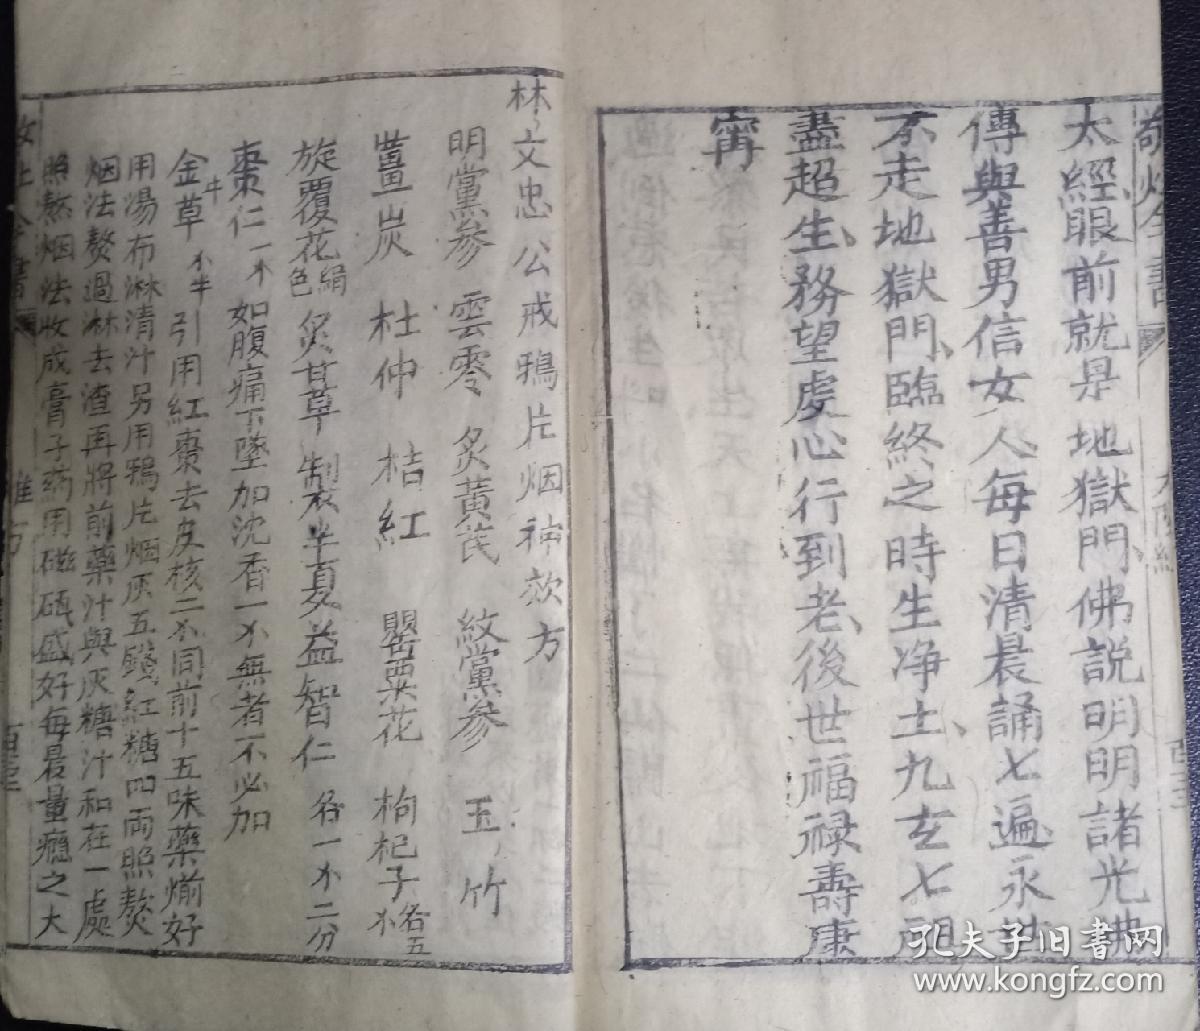 太經眼前就是地獄門佛説明明諸光佛
傳與善男信女人每日清晨誦七遍永世
不走地獄門臨終之時生净土九玄七祖
盡超生務望虔心行到老後世福禄壽康
甯
林文忠公戒鴉片烟神效方
明黨參 雲苓 炙黃芪 紋黨參 玉竹
薑炭 杜仲 桔紅 罌粟花 枸杞子各五
旋覆花絹色 炙甘草 製半夏 益智仁 各一 二分
棗仁一 如腹痛下墜加沈香一 無者不必加
金草 引用紅棗去皮核二 同前十五味藥煎好
用湯布淋清汁另用鴉片烟灰五錢紅糖四両照熬
烟法熬過淋去渣再將前藥汁與灰糖汁和在一處
照熬烟法收成膏子葯用磁 盛好每晨量癮之大
孔夫子旧書网
www.kongfz.com